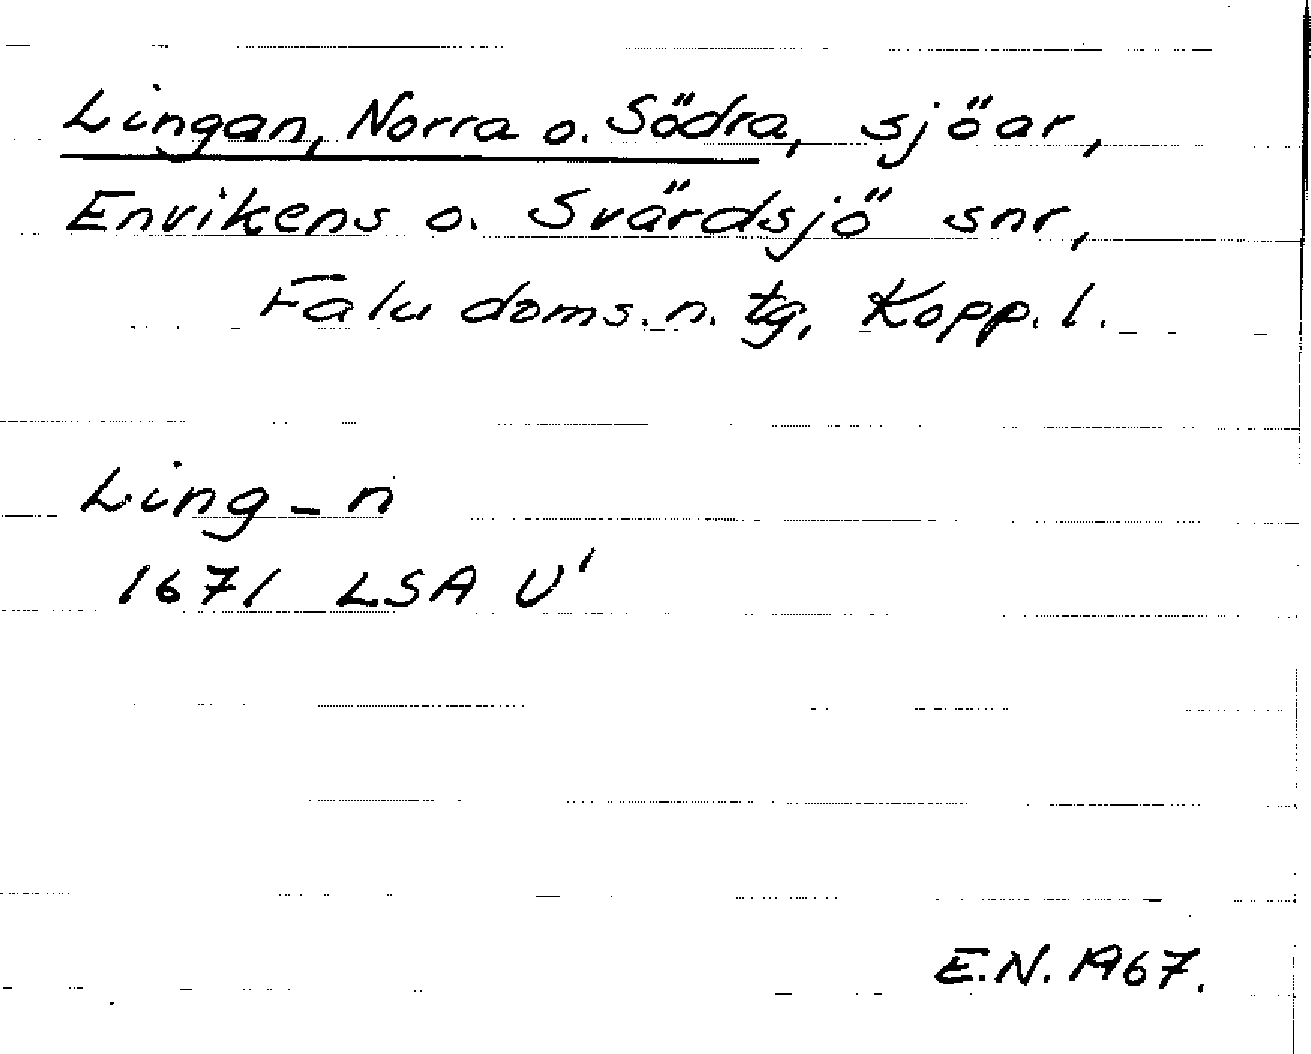 Lingan, Norra o. Södra, sjöar,
Envikens o. Svärdsjö snr,
Falu doms. n. tg, Kopp. l.
Ling-n
1671 LSA U'
E.N. 1967.